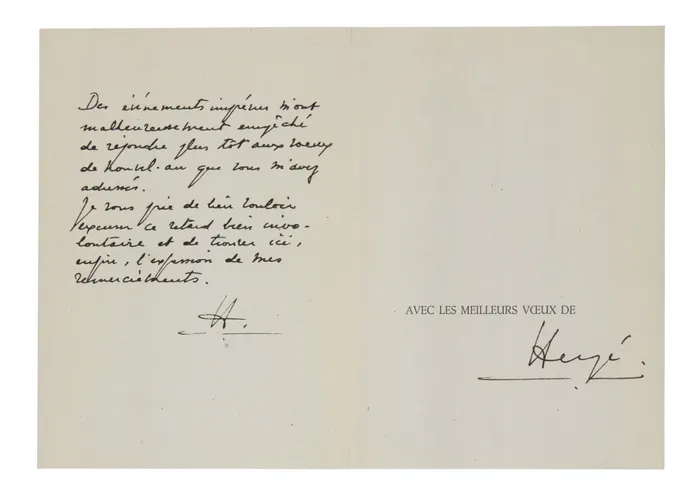 Des événements imprévus m'ont
malheureusement empêché
de répondre plus tôt aux vœux
de Nouvel-an que vous m'avez
adressés.
Je vous prie de bien vouloir
excuser ce retard bien invo-
lontaire et de trouver ici,
enfin, l'expression de mes
remerciements.
H.
AVEC LES MEILLEURS VŒUX DE
Hergé.